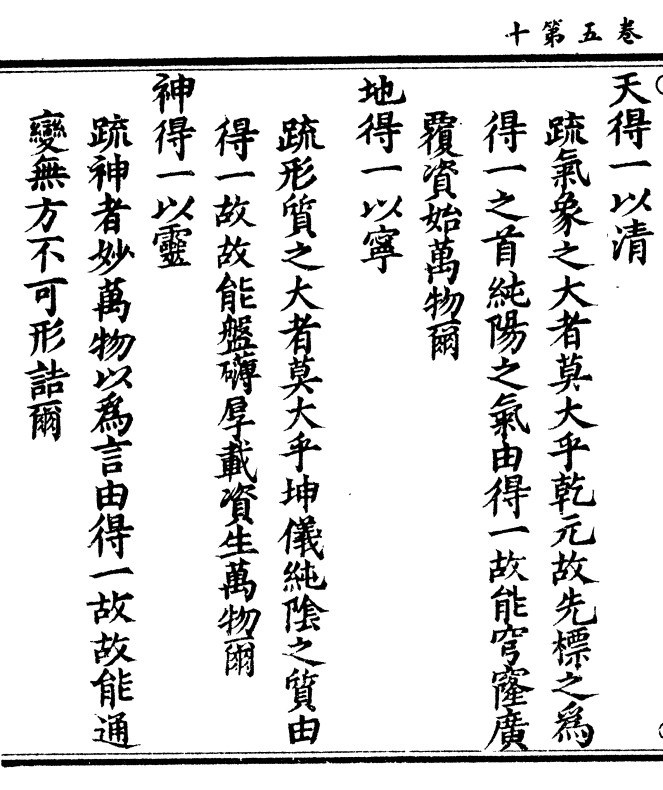 卷五第十
天得一以清
疏氣象之大者莫大乎乾元故先標之爲
得一之首純陽之氣由得一故能穹窿廣
覆資始萬物爾
地得一以寧
疏形質之大者莫大乎坤儀純陰之質由
得一故故能盤礴厚載資生萬物爾
神得一以靈
疏神者妙萬物以爲言由得一故故能通
變無方不可形詰爾